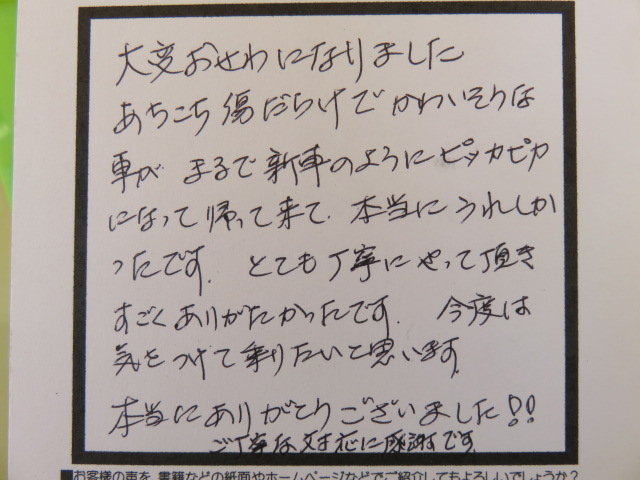 大変おせわになりました
あちこち傷だらけでかわいそうな
車が まるで新車のようにピッカピカ
になって帰って来て、本当にうれしか
ったです。とても丁寧にやって頂き
すごくありがたかったです。 今度は
気をつけて乗りたいと思います。
本当にありがとうございました!!
ご丁寧な対応に感謝です
■お客様の声を、書籍などの紙面やホームページなどでご紹介してもよろしいでしょうか?